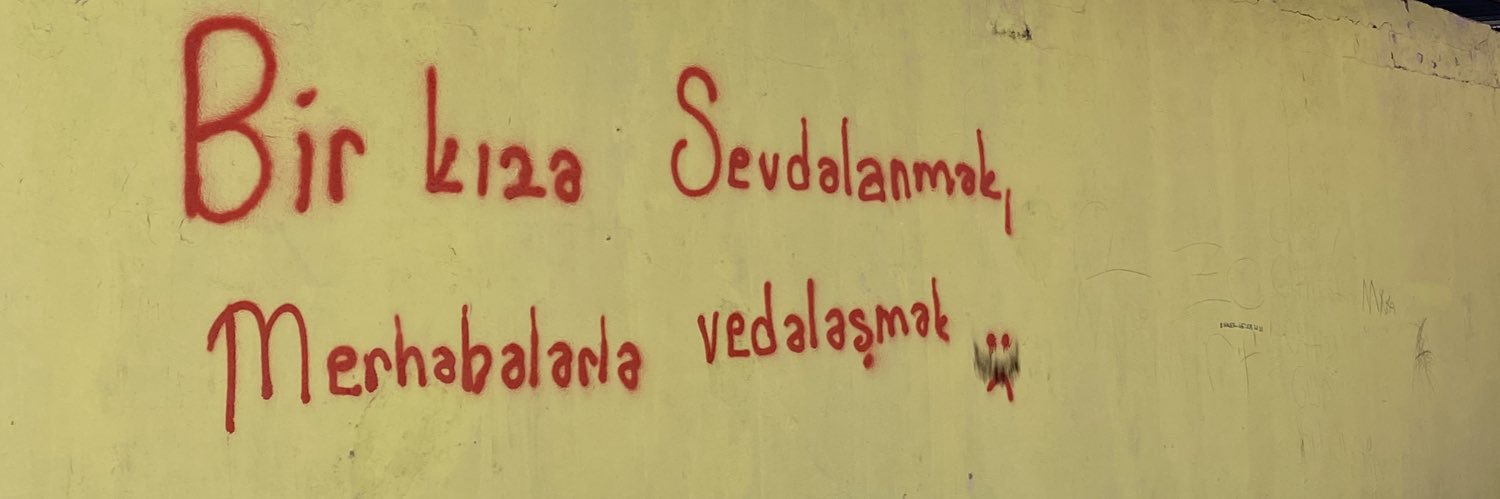 Bir kıza Sevdalanmak,
Merhabalarla vedalaşmak